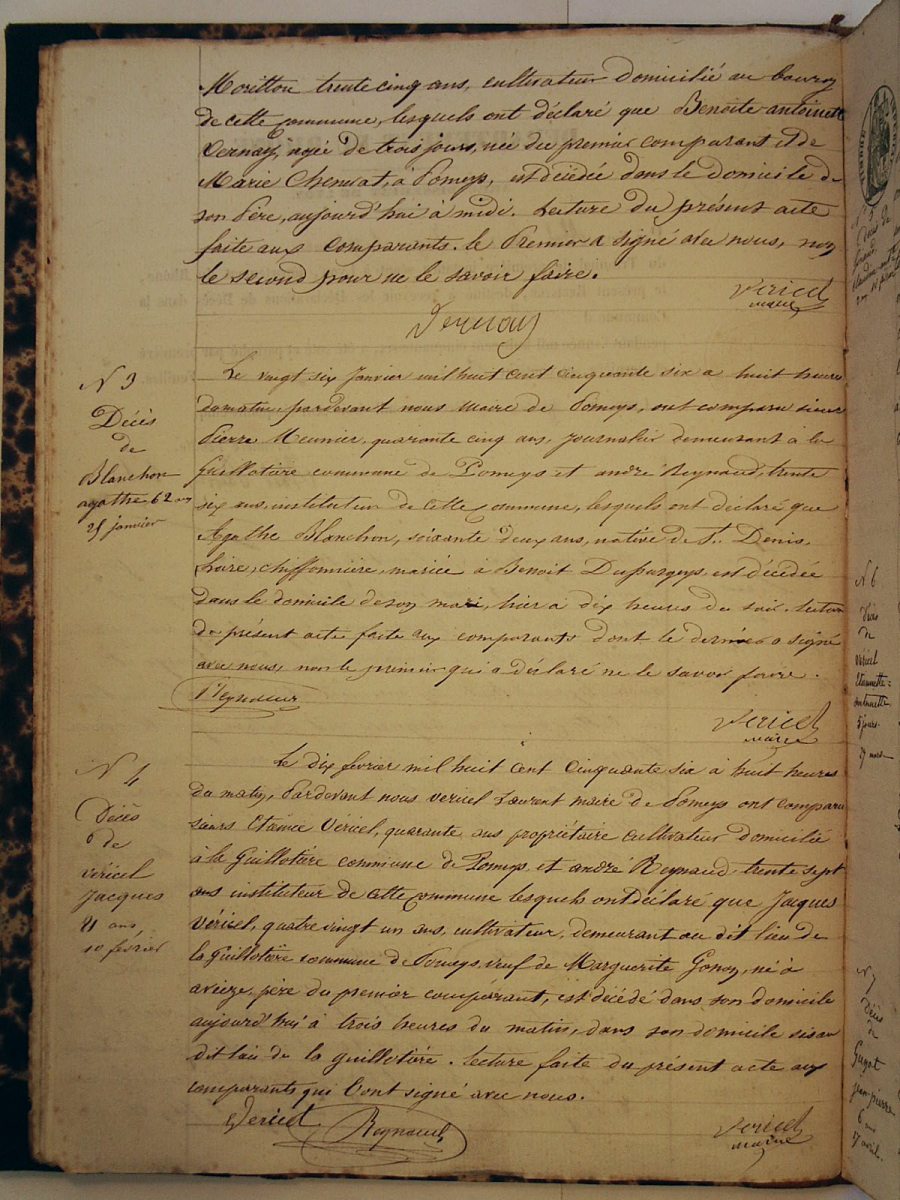 Moritton trente cinq ans, cultivateur domicilié au bourg
de cette commune, lesquels ont déclaré que Benoite antoinette
Vernay, agée de trois jours, née du premier comparant et de
Marie Chenevat, à Pomeys, est décédée dans le domicile de
son Père, aujourd'hui à midi. Lecture du présent acte
faite aux comparants. le Premier a signé avec nous, non
le second pour ne le savoir faire.
Vericel
maire
Vernay
N 3
Décès
de
Blanchon
agathe 62 ans
25 janvier
Le vingt six Janvier mil huit cent cinquante six à huit heures
du matin pardevant nous maire de Pomeys, ont comparu sieurs
Pierre Meunier, quarante cinq ans, journalier demeurant à la
guillotière commune de Pomeys et andré Reynaud, trente
six ans, instituteur de cette commune, lesquels ont déclaré que
Agathe Blanchon, soixante deux ans, native de St. Denis,
Loire, chiffonnière, mariée à Benoit, est décédée
dans le domicile de son mari, hier à dix heures du soir. Lecture
du présent acte faite aux comparants dont le dernier a signé
avec nous, non le premier qui a déclaré ne le savoir faire.
Reynaud
Vericel
maire
N 4
Décès
de
véricel
Jacques
81 ans
10 février
Le dix fevrier mil huit cent cinquante six à huit heures
du matin, Pardevant nous vericel Laurent maire de Pomeys ont comparu
sieurs Etienne Véricel, quarante ans propriétaire cultivateur domicilié
à la Guillotière commune de Pomeys et andré Reynaud trente sept
ans instituteur de cette commune lesquels ont déclaré que Jacques
Véricel, quatre vingt un ans, cultivateur, demeurant au dit lieu de
la Guillotière commune de Pomeys, veuf de Marguerite Gonon, né à
aveize, père du premier comparant, est décédé dans son domicile
aujourd'hui à trois heures du matin, dans son domicile sis au
dit lieu de la guillotière. Lecture faite du présent acte aux
comparants qui l'ont signé avec nous.
Vericel
Reynaud
Vericel
maire
N 6
Décès
de
Véricel
antoinette
5 jours
7 mars
N 7
Décès
de
Guyot
jean pierre
6 ans
7 avril.